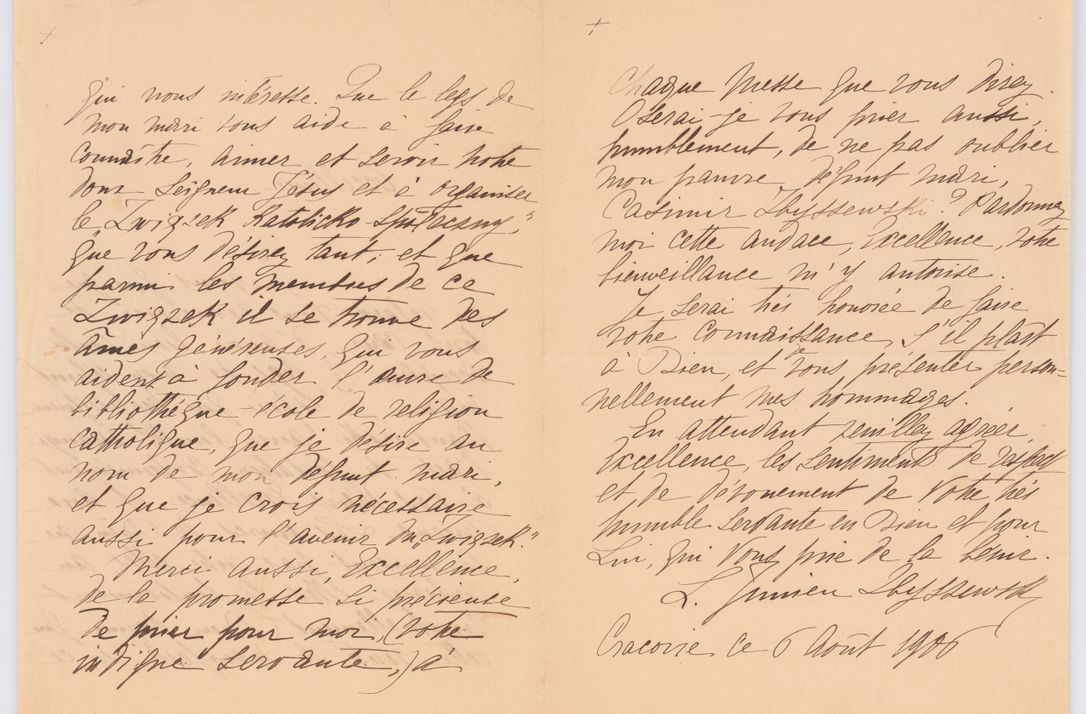 +
qui vous intéresse. Que le legs de
mon mari vous aide à faire
connaître, aimer et servir notre
doux Seigneur Jésus et à organiser
le „Związek Katolicko-Społeczny,"
que vous désirez tant; et que
parmi les membres de ce
Związek il se trouve des
âmes généreuses, qui vous
aident à fonder l'œuvre de
bibliothèque-école de religion
catholique, que je désire au
nom de mon défunt mari,
et que je crois nécessaire
aussi pour l'avenir du „Związek."
Merci aussi, Excellence,
de la promesse si précieuse
de prier pour moi, (votre
indigne servante,) à
+
Chaque Messe que vous direz.
Oserai-je vous prier aussi,
humblement, de ne pas oublier
mon pauvre défunt mari,
Casimir Zbyszewski? Pardonnez
moi cette audace, Excellence, votre
bienveillance m'y autorise.
Je serai très honorée de faire
votre connaissance, s'il plaît
à Dieu, et de vous présenter person=
nellement mes hommages.
En attendant veuillez agréer,
Excellence, les sentiments de respect
et de dévouement de Votre très
humble servante en Dieu et pour
Lui, qui Vous prie de la bénir.
L. Zbyszewski
Cracovie, ce 6 Août 1906